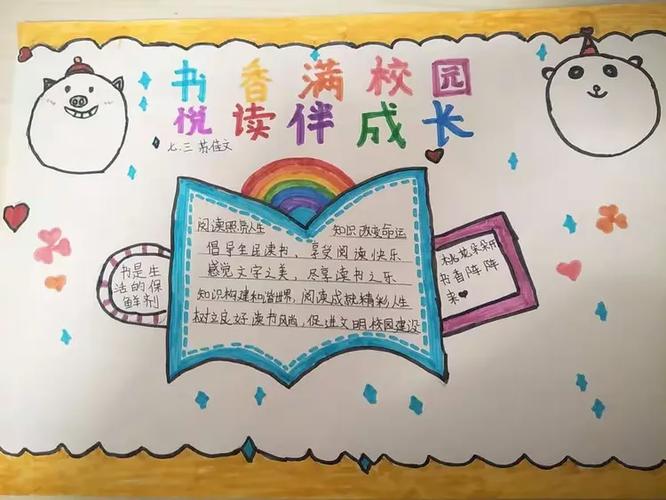 书香满校园
悦读伴成长
七.三 苏佳文
阅读照亮人生 知识改变命运
倡导全民读书，享受阅读快乐
感觉文字之美，尽享读书之乐
知识构建和谐世界，阅读成就精彩人生
树立良好读书风尚，促进文明校园建设
书是生
活的保
鲜剂
桃花朵朵开
书香阵阵
来